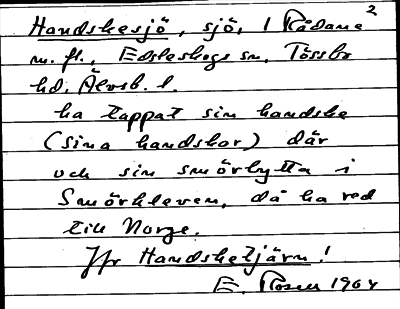 2
Handskesjö, sjö, i Rådane
m. fl., Edsleskogs sn, Tössbo
hd. Älvsb. l.
ha tappat sin handske
(sina handskor) där
och sin smörbytta i
Smörkleven, då ha red
till Norge.
Jfr Handsketjärn!
E. Rosell 1964